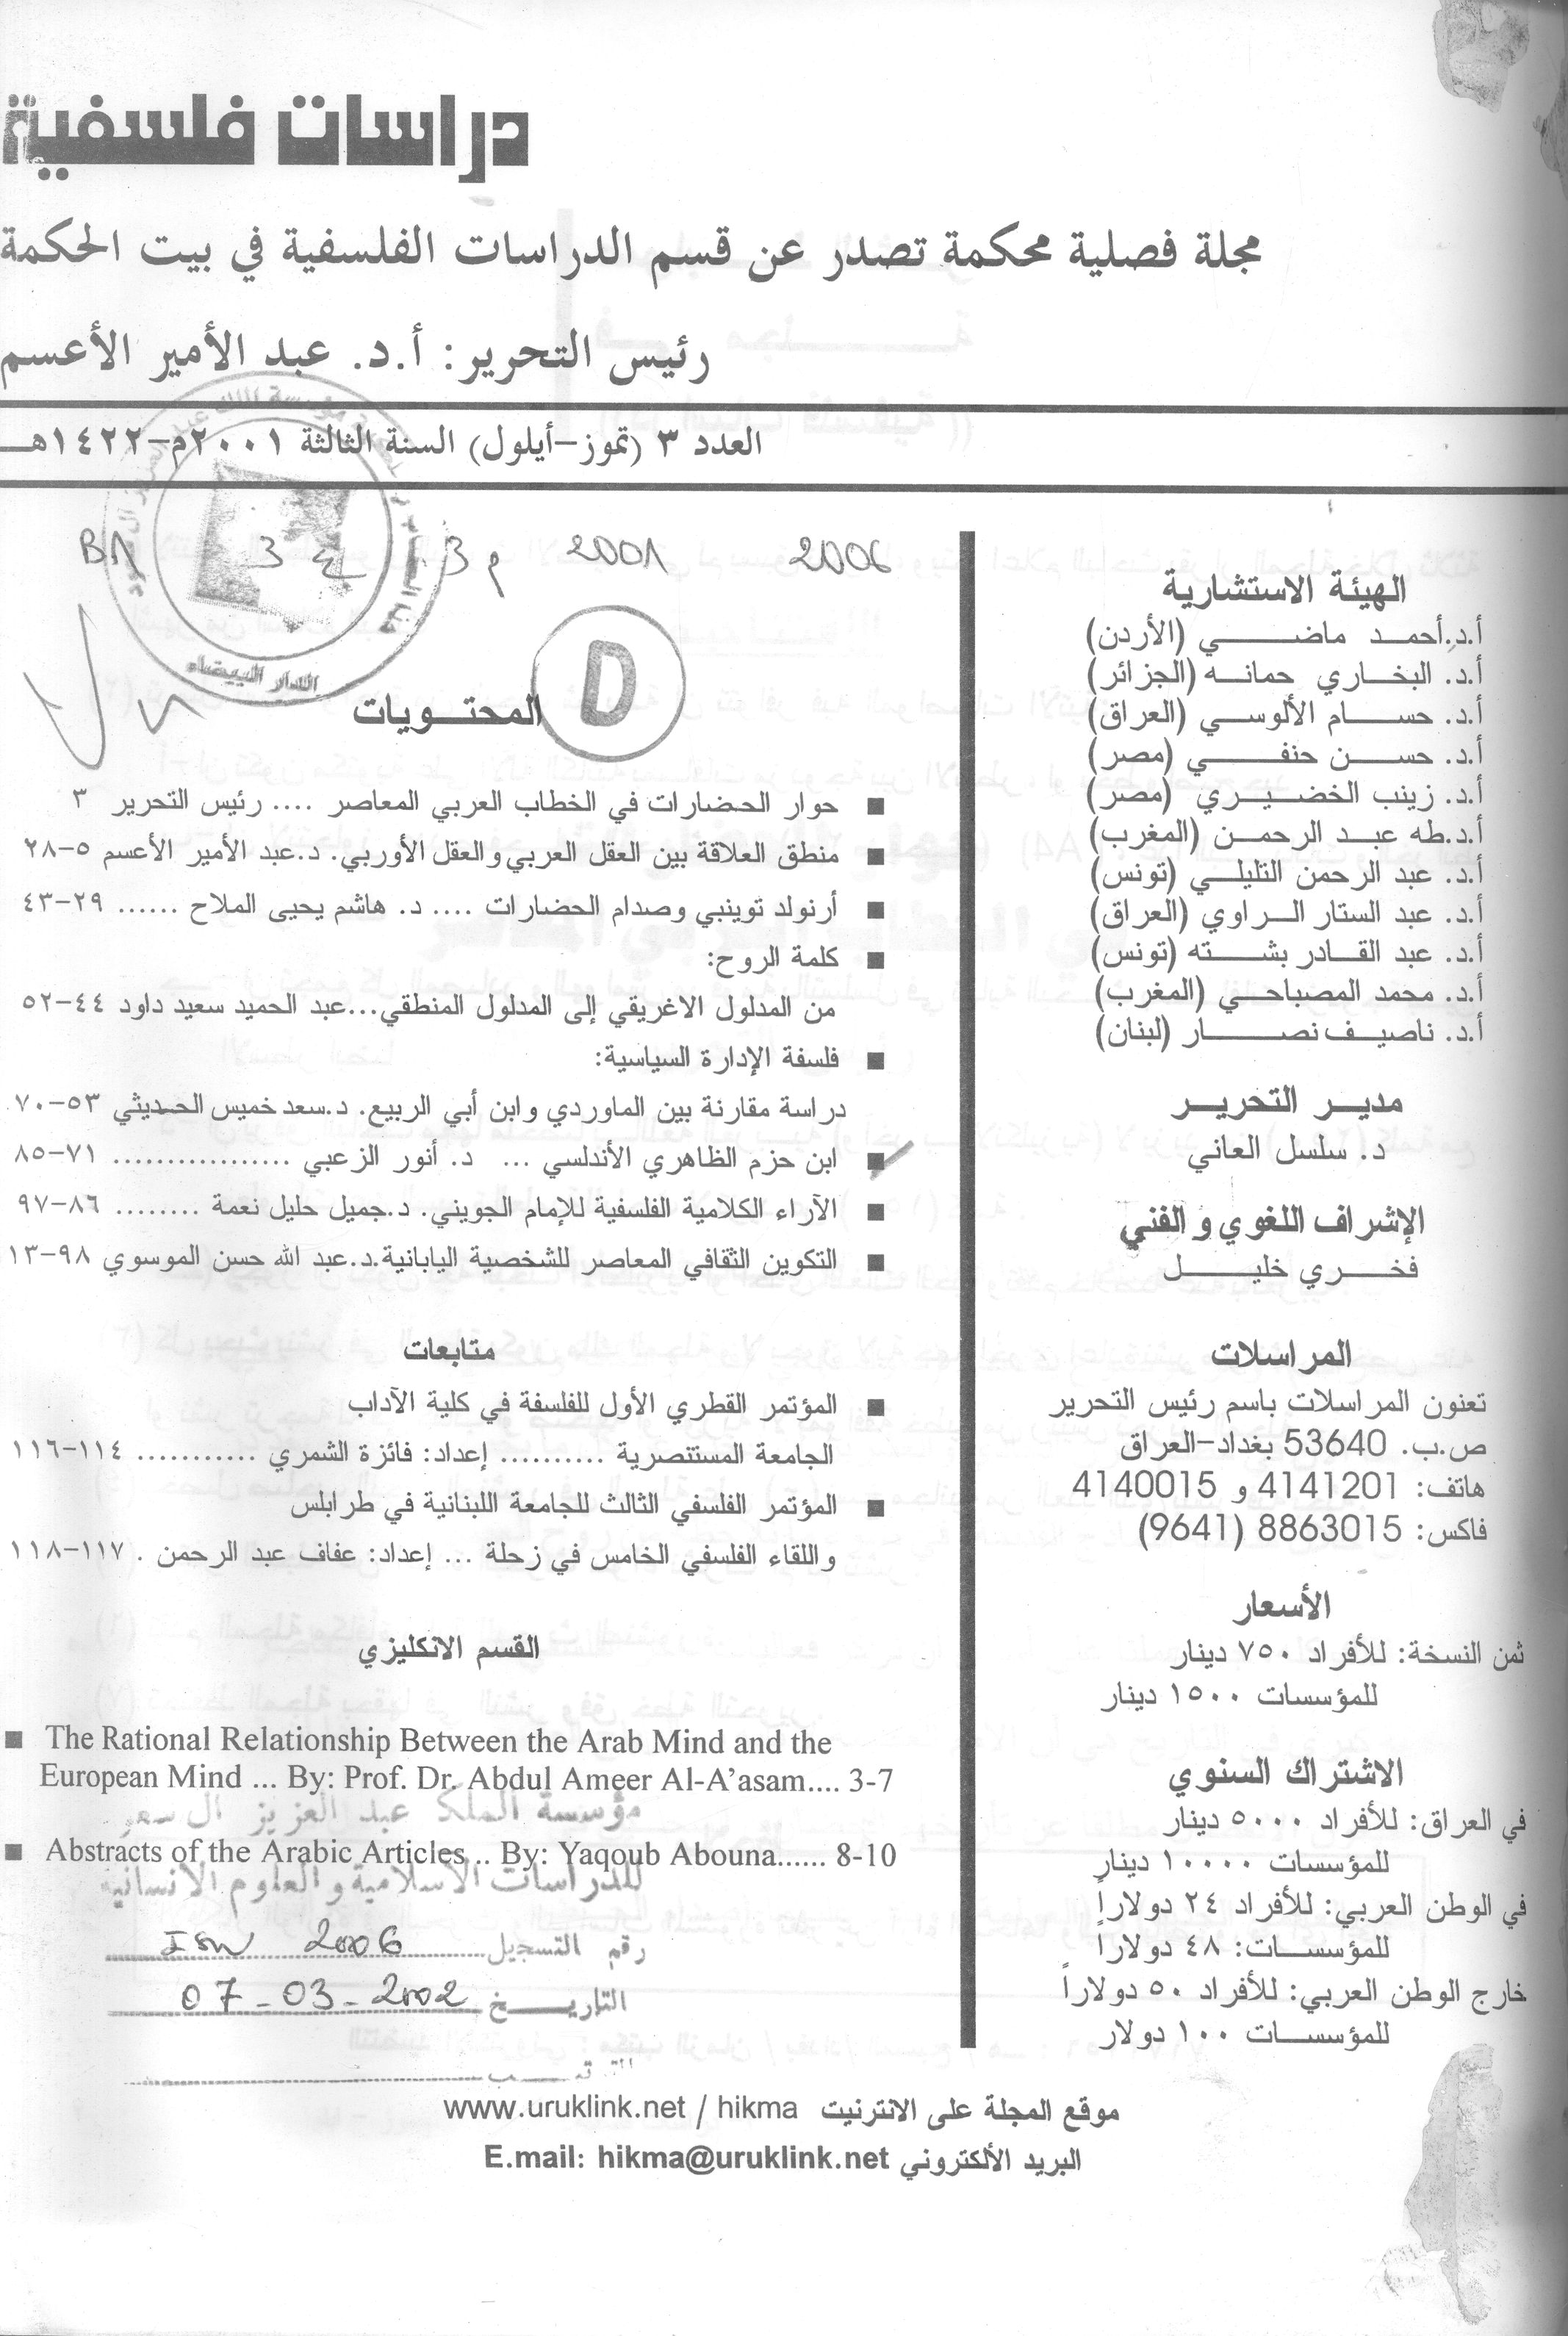 دراسات فلسفية
مجلة فصلية محكمة تصدر عن قسم الدراسات الفلسفية في بيت الحكمة
رئيس التحرير: أ.د. عبد الأمير الأعسم
العدد ٣ (تموز-أيلول) السنة الثالثة ٢٠٠١م-١٤٢٢هـ
الهيئة الاستشارية
أ.د.أحمد ماضي (الأردن)
أ.د. البخاري حمانه (الجزائر)
أ.د. حسام الألوسي (العراق)
أ.د. حسن حنفي (مصر)
أ.د. زينب الخضيري (مصر)
أ.د.طه عبد الرحمن (المغرب)
أ.د. عبد الرحمن التليلي (تونس)
أ.د. عبد الستار الراوي (العراق)
أ.د. عبد القادر بشته (تونس)
أ.د. محمد المصباحي (المغرب)
أ.د. ناصيف نصار (لبنان)
مدير التحرير
د. سلسل العاني
الإشراف اللغوي والفني
فخري خليل
المراسلات
تعنون المراسلات باسم رئيس التحرير
ص.ب. 53640 بغداد-العراق
هاتف: 4141201 و 4140015
فاكس: 8863015 (9641)
الأسعار
ثمن النسخة: للأفراد ٧٥٠ دينار
للمؤسسات ١٥٠٠ دينار
الاشتراك السنوي
في العراق: للأفراد ٥٠٠٠ دينار
للمؤسسات ١٠٠٠٠ دينار
في الوطن العربي: للأفراد ٢٤ دولاراً
للمؤسسات: ٤٨ دولاراً
خارج الوطن العربي: للأفراد ٥٠ دولاراً
للمؤسسات ١٠٠ دولار
2006 2001 م 3 ع 3 BA
الدار البيضاء
D
المحتويات
■ حوار الحضارات في الخطاب العربي المعاصر .... رئيس التحرير ٣
■ منطق العلاقة بين العقل العربي والعقل الأوربي. د.عبد الأمير الأعسم ٥-٢٨
■ أرنولد توينبي وصدام الحضارات .... د. هاشم يحيى الملاح ...... ٢٩-٤٣
■ كلمة الروح:
من المدلول الاغريقي إلى المدلول المنطقي...عبد الحميد سعيد داود ٤٤-٥٢
■ فلسفة الإدارة السياسية:
دراسة مقارنة بين الماوردي وابن أبي الربيع. د.سعد خميس الحديثي ٥٣-٧٠
■ ابن حزم الظاهري الأندلسي ... د. أنور الزعبي ................. ٧١-٨٥
■ الآراء الكلامية الفلسفية للإمام الجويني. د.جميل حليل نعمة ........ ٨٦-٩٧
■ التكوين الثقافي المعاصر للشخصية اليابانية.د.عبد الله حسن الموسوي ٩٨-١٣
متابعات
■ المؤتمر القطري الأول للفلسفة في كلية الآداب
الجامعة المستنصرية .......... إعداد: فائزة الشمري ........... ١١٤-١١٦
■ المؤتمر الفلسفي الثالث للجامعة اللبنانية في طرابلس
واللقاء الفلسفي الخامس في زحلة ... إعداد: عفاف عبد الرحمن . ١١٧-١١٨
القسم الانكليزي
■ The Rational Relationship Between the Arab Mind and the
European Mind ... By: Prof. Dr. Abdul Ameer Al-A'asam.... 3-7
مؤسسة الملك عبد العزيز آل سعو
■ Abstracts of the Arabic Articles .. By: Yaqoub Abouna...... 8-10
للدراسات الاسلامية والعلوم الانسانية
رقم التسجيل ISW 2006
التاريخ 07-03-2002
موقع المجلة على الانترنيت www.uruklink.net / hikma
البريد الألكتروني E.mail: hikma@uruklink.net